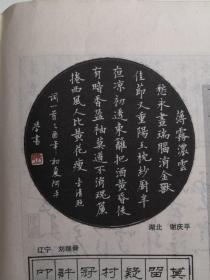 薄霧濃雲
愁永晝瑞腦消金獸
佳節又重陽玉枕紗厨半
夜凉初透東籬把酒黄昏後
有暗香盈袖莫道不消魂簾
捲西風人比黄花瘦 李清照
詞一首 酉年初夏
湖北 谢庆平
辽宁